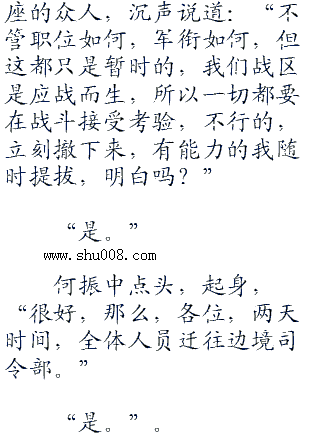 座的众人，沉声说道：“不
管职位如何，军衔如何，但
这都只是暂时的，我们战区
是应战而生，所以一切都要
在战斗接受考验，不行的，
立刻撤下来，有能力的我随
时提拔，明白吗？”
“是。”
www.shu008.com
何振中点头，起身，
“很好，那么，各位，两天
时间，全体人员迁往边境司
令部。”
“是。”。